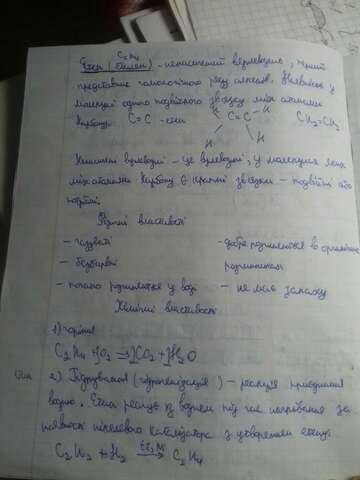 C₂H₄
Етен (Етилен) - ненасичений вуглеводень, перший
представник гомологічного ряду алкенів. Наявність у
молекулі одного подвійного зв'язку між атомами
Карбону. C=C - етен H H C=C H H CH₂=CH₂
Ненасичені вуглеводні - це вуглеводні, у молекулах яких
між атомами Карбону є кратні зв'язки - подвійні або
потрійні.
Фізичні властивості
- газуваті - добре розчиняються в органічних
- безбарвні розчинниках
- погано розчиняються у воді - не має запаху
Хімічні властивості
1) горіння
C₂H₄+O₂→CO₂+H₂O
2) Гідрування (гідрогенізація) - реакція приєднання
водню. Етен реагує із воднем під час нагрівання за
наявності нікелевого каталізатора з утворенням етану:
C₂H₂+H₂ t, Ni → C₂H₄